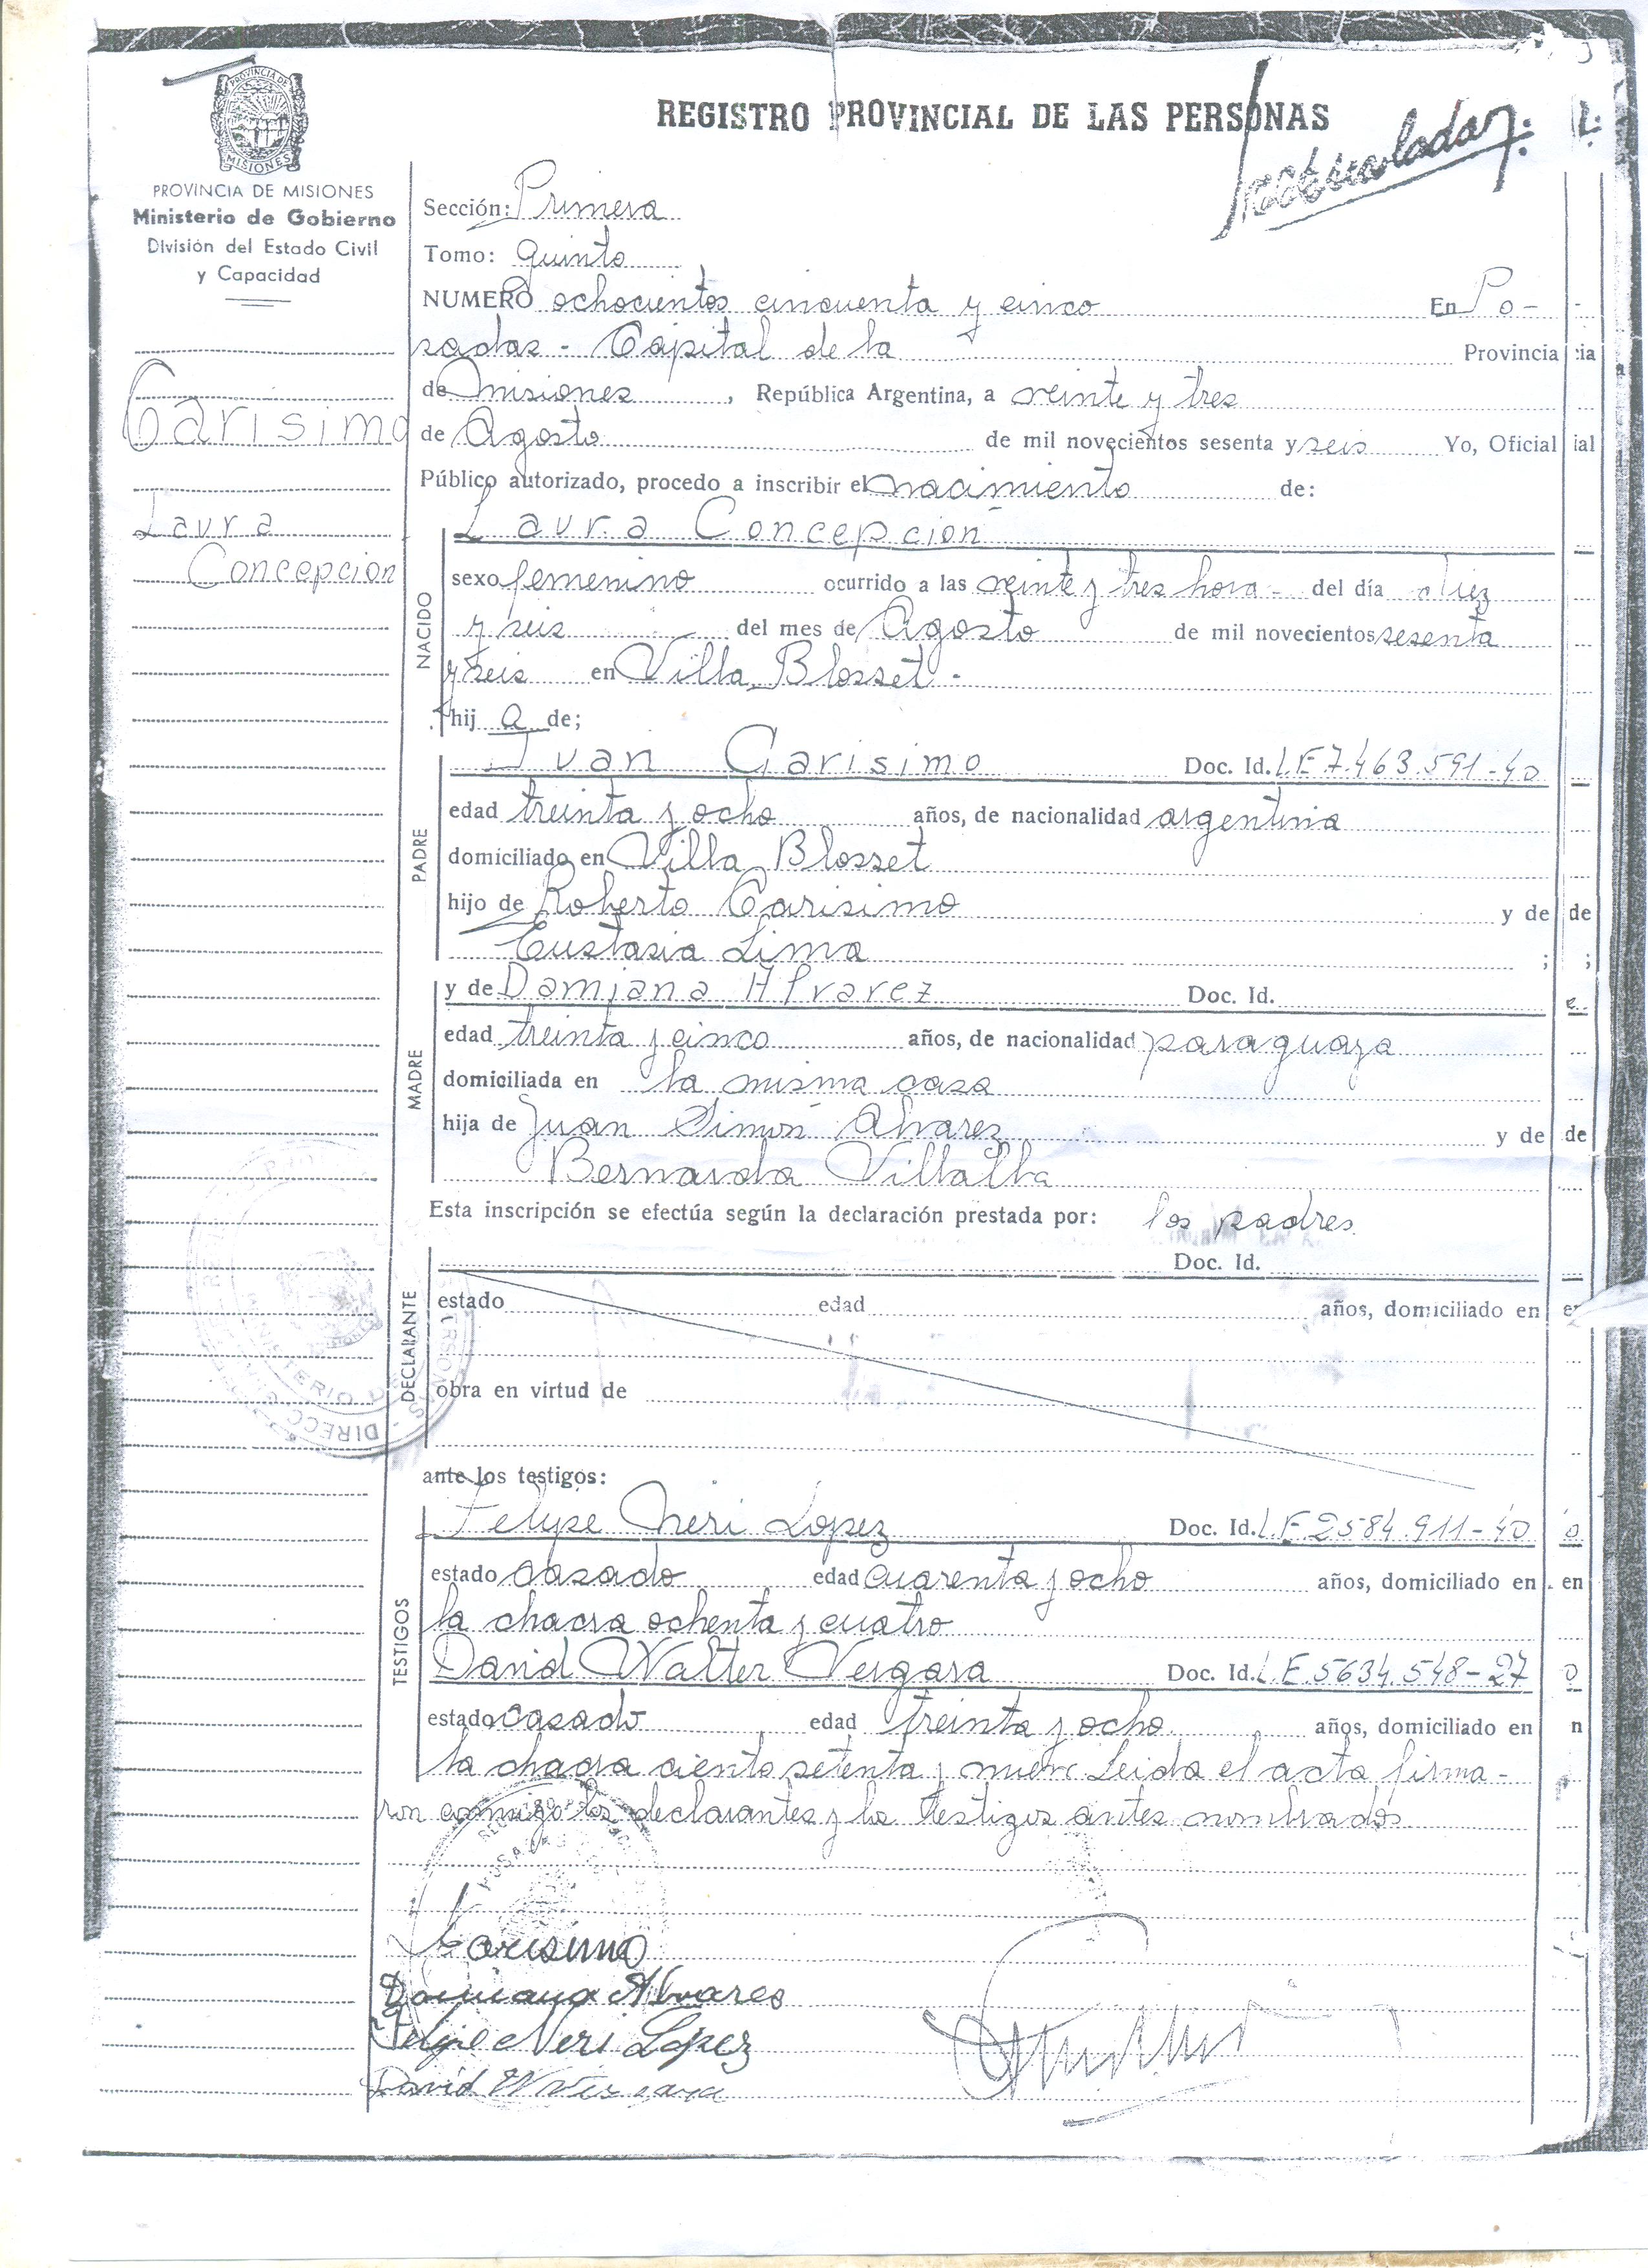 REGISTRO PROVINCIAL DE LAS PERSONAS
PROVINCIA DE
MISIONES
PROVINCIA DE MISIONES
Ministerio de Gobierno
División del Estado Civil
y Capacidad
Carisimo
Laura
Concepcion
Sección: Primera
Tomo: Quinto
NUMERO ochocientos cincuenta y cinco En Po-
sadas - Capital de la Provincia
de Misiones, República Argentina, a veinte y tres
de Agosto de mil novecientos sesenta y seis Yo, Oficial
Público autorizado, procedo a inscribir el nacimiento de:
NACIDO
Laura Concepción
sexo femenino ocurrido a las veinte y tres hora- del día diez
y seis del mes de Agosto de mil novecientos sesenta
y seis en Villa Blosset -
hij a de;
PADRE
Juan Carisimo Doc. Id. L.E 7.463.591-40
edad treinta y ocho años, de nacionalidad argentina
domiciliado en Villa Blosset
hijo de Roberto Carisimo y de
Eustasia Lima ;
MADRE
y de Damiana Alvarez Doc. Id.
edad treinta y cinco años, de nacionalidad paraguaya
domiciliada en la misma casa
hija de Juan Simón Alvarez y de
Bernarda Villalba
Esta inscripción se efectúa según la declaración prestada por: los padres.
DECLARANTE
Doc. Id.
estado edad años, domiciliado en
obra en virtud de
ante los testigos:
TESTIGOS
Felipe Neri López Doc. Id. L.E 2584.911-40
estado casado edad cuarenta y ocho años, domiciliado en
la chacra ochenta y cuatro
David Walter Vergara Doc. Id. L.E. 5634.548-27
estado casado edad treinta y ocho años, domiciliado en
la chacra ciento setenta y nueve Leida el acta firma-
ron conmigo los declarantes y los testigos antes nombrados
Carisimo
Damiana Alvares
Felipe Neri López
David W Vergara